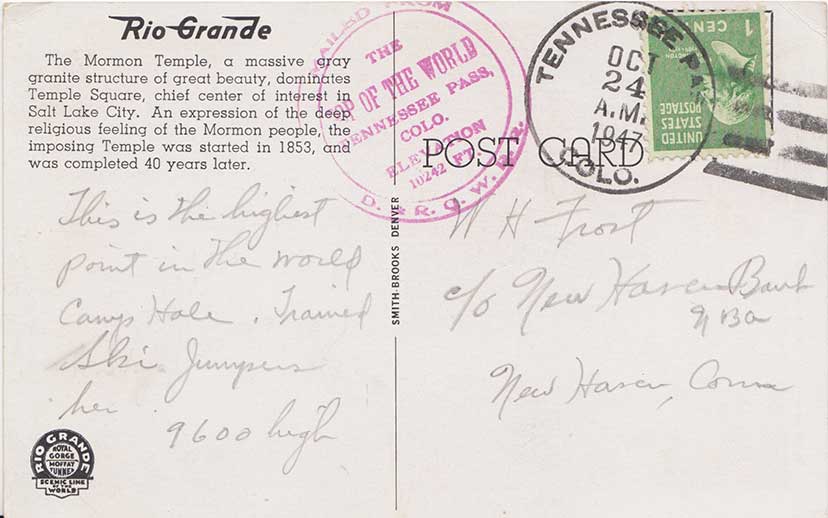 Rio Grande
The Mormon Temple, a massive gray
granite structure of great beauty, dominates
Temple Square, chief center of interest in
Salt Lake City. An expression of the deep
religious feeling of the Mormon people, the
imposing Temple was started in 1853, and
was completed 40 years later.
MAILED FROM
THE
TOP OF THE WORLD
TENNESSEE PASS,
COLO.
ELEVATION
10242 FT.
D. & R. G. W.
TENNESSEE
OCT
24
A.M.
1947
COLO.
1 CENT
UNITED STATES
POSTAGE
POST CARD
This is the highest
point in the world
Camp Hale. Trained
Ski Jumpers
her
9600 high
SMITH-BROOKS DENVER
W H Frost
c/o New Haven Bank
N B A
New Haven, Conn
RIO GRANDE
ROYAL
GORGE
MOFFAT
TUNNEL
SCENIC LINE
OF THE
WORLD